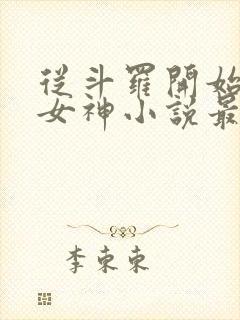 從斗羅開始
女神小說最
李東東